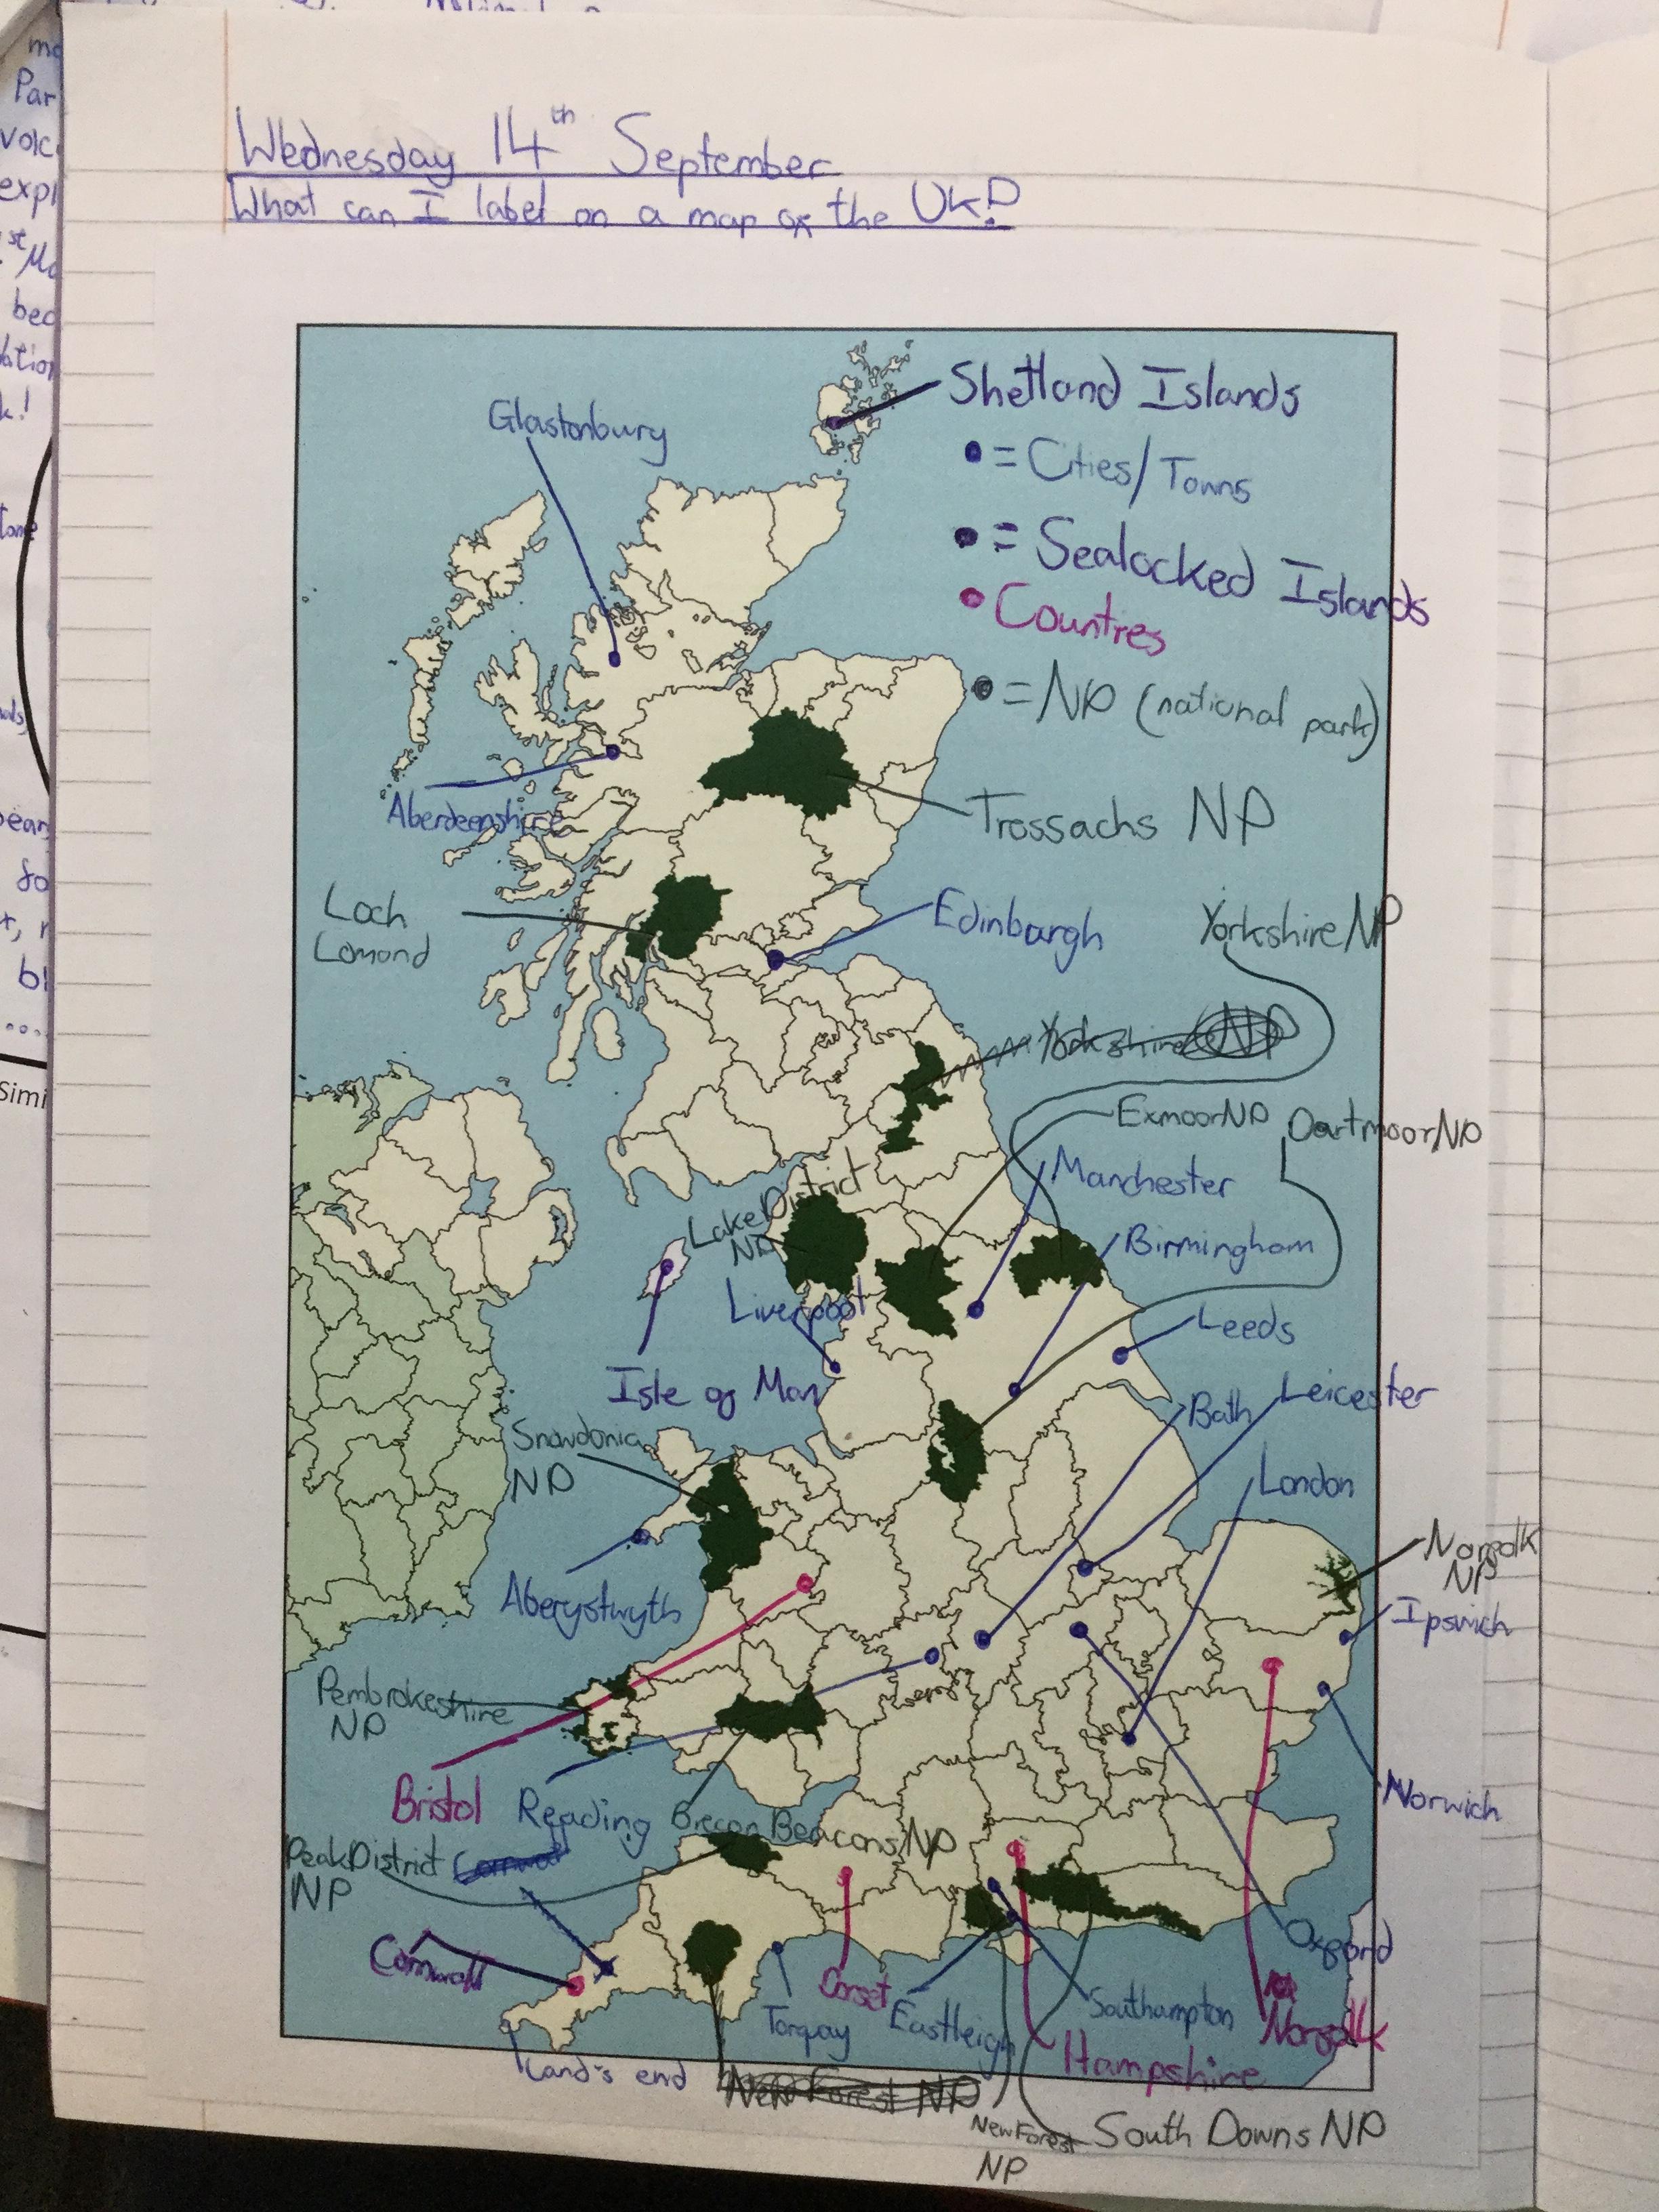 Wednesday 14th September
What can I label on a map of the UK?
Shetland Islands
Glastonbury
= Cities/Towns
= Sealocked Islands
Countres
= NP (national park)
Aberdeenshire
Trossachs NP
Loch
Lomond
Edinburgh
Yorkshire NP
Yorkshire NP
Exmoor NP
Dartmoor NP
Manchester
Lake District
NP
Birmingham
Liverpool
Leeds
Isle of Man
Bath
Leicester
Snowdonia
NP
London
Norfolk
NP
Aberystwyth
Ipswich
Pembrokeshire
NP
Bristol
Reading
Brecon Beacons NP
Norwich
Peak District
NP
Cornwall
Oxford
Cornwall
Dorset
Torquay
Eastleigh
Southampton
Norfolk
Hampshire
Land's end
New Forest NP
New Forest
NP
South Downs NP
mo
Par
voic
expl
st Mo
bec
ation
k!
tone
pears
fo
bl
Simi